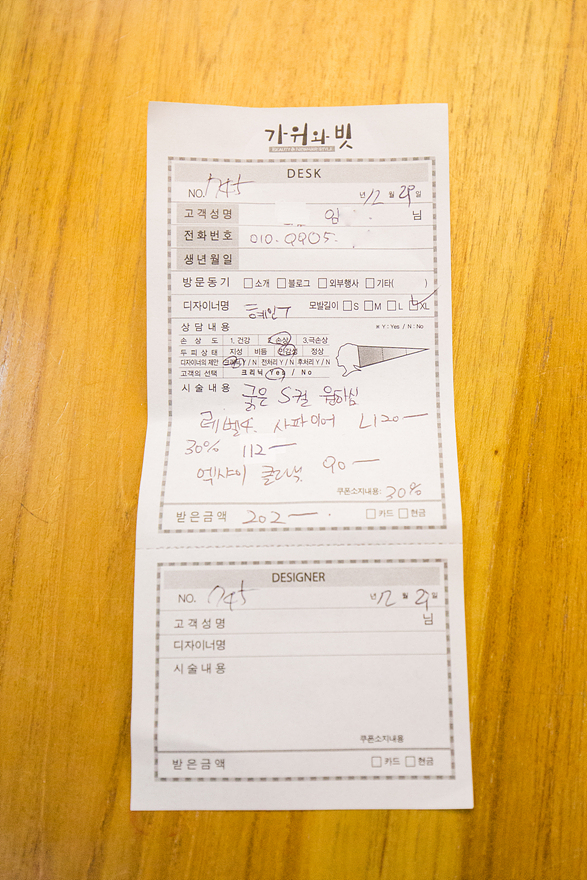 가위와 빗
DESK
NO. 745 년 12 월 29 일
고객성명 임 님
전화번호 010. 9905.
생년월일
방문동기 □소개 □블로그 □외부행사 □기타( )
디자이너명 혜인 T 모발길이 □S □M □L □XL
상담내용 ※ Y : Yes / N : No
손 상 도 1. 건강 2. 손상 3. 극손상
두피상태 지성 비듬 민감성 정상
디자이너의 제안 크리닉 Y / N 전처리 Y / N 후처리 Y / N
고객의 선택 크리닉 Yes / No
시술내용 굵은 S컬 원하심
레벨4. 사파이어 L120―
30% 112―
엑샤이 클리닉 90―
쿠폰소지내용: 30%
받은금액 202―. □카드 □현금
DESIGNER
NO. 745 년 12 월 29 일
고객성명 님
디자이너명
시술내용
쿠폰소지내용
받은금액 □카드 □현금